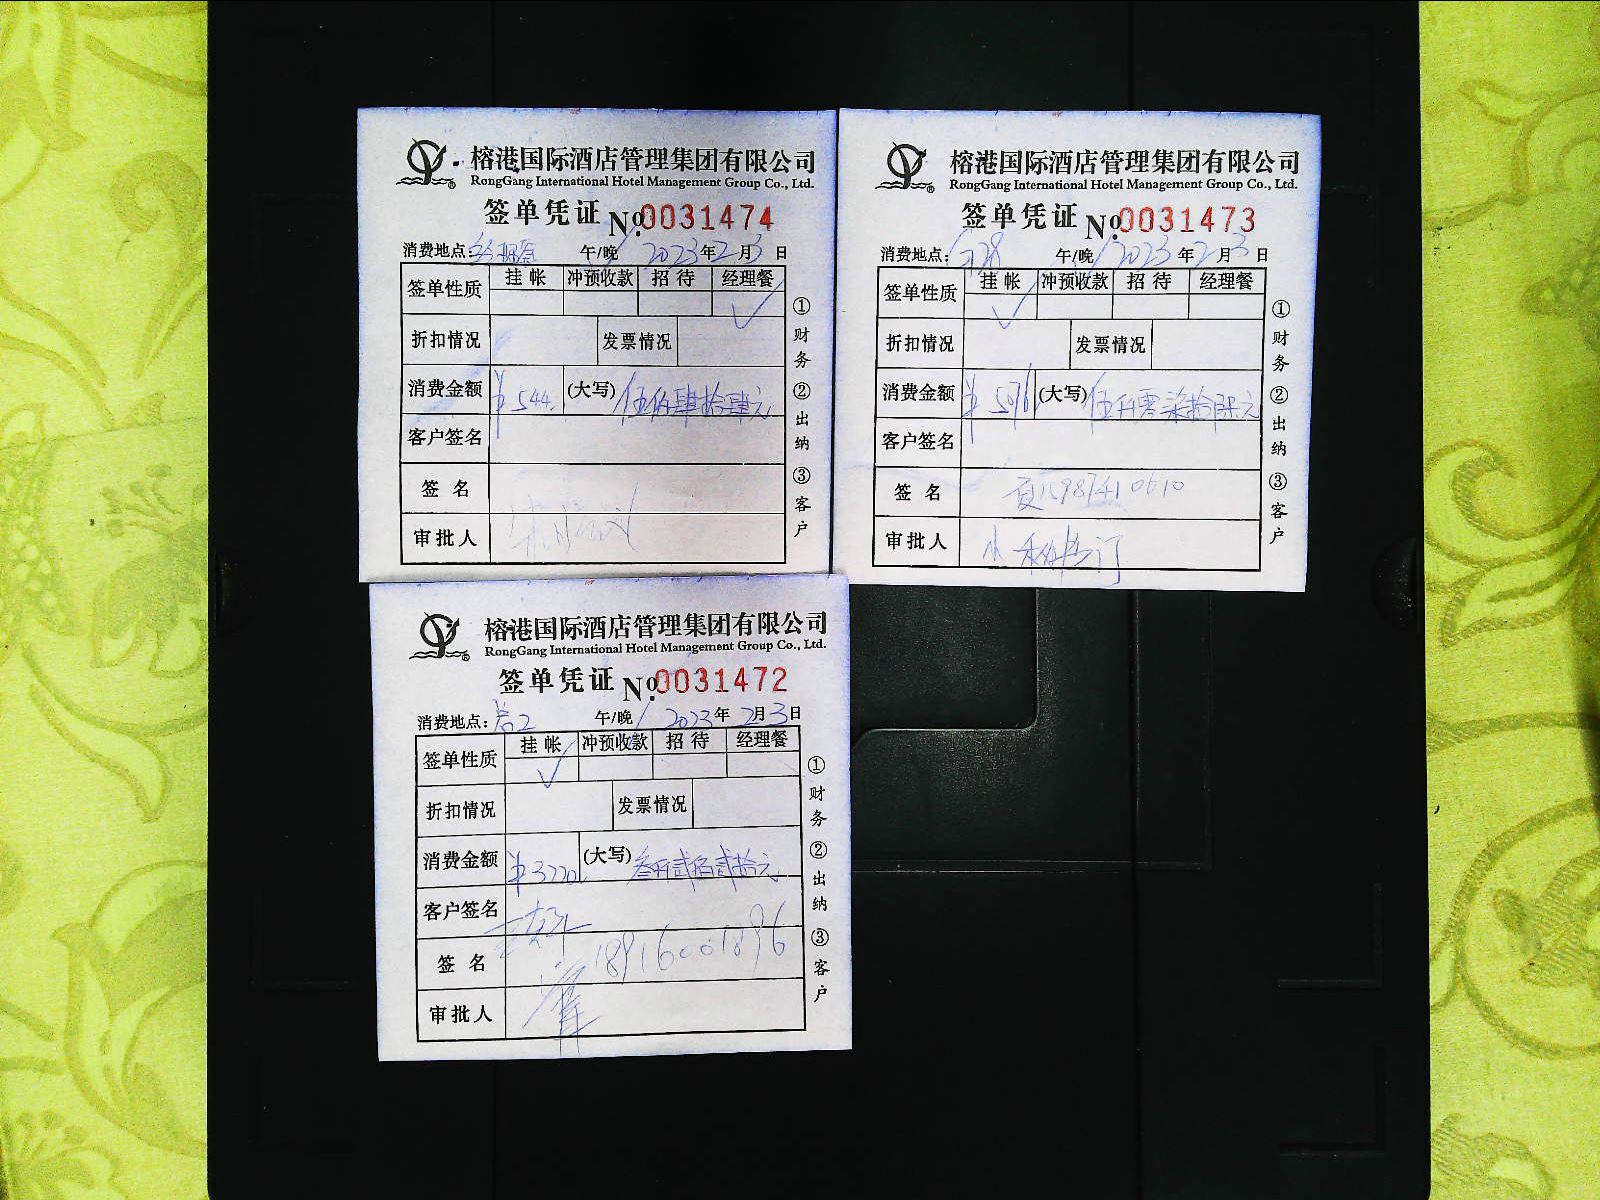 榕港国际酒店管理集团有限公司
RongGang International Hotel Management Group Co., Ltd.
签单凭证 No.0031474
消费地点: 午/晚 2023年2月3日
签单性质 挂帐 冲预收款 招待 经理餐
✓
折扣情况 发票情况
消费金额 ¥544. (大写) 伍佰肆拾肆元
客户签名
签名
审批人
①财务 ②出纳 ③客户
榕港国际酒店管理集团有限公司
RongGang International Hotel Management Group Co., Ltd.
签单凭证 No.0031473
消费地点: 午/晚 2023年2月3日
签单性质 挂帐 冲预收款 招待 经理餐
✓
折扣情况 发票情况
消费金额 ¥5076 (大写) 伍仟零柒拾陆元
客户签名
签名
审批人
①财务 ②出纳 ③客户
榕港国际酒店管理集团有限公司
RongGang International Hotel Management Group Co., Ltd.
签单凭证 No.0031472
消费地点: 午/晚 2023年2月3日
签单性质 挂帐 冲预收款 招待 经理餐
✓
折扣情况 发票情况
消费金额 ¥3220. (大写) 叁仟贰佰贰拾元
客户签名
签名 18916001896
审批人
①财务 ②出纳 ③客户